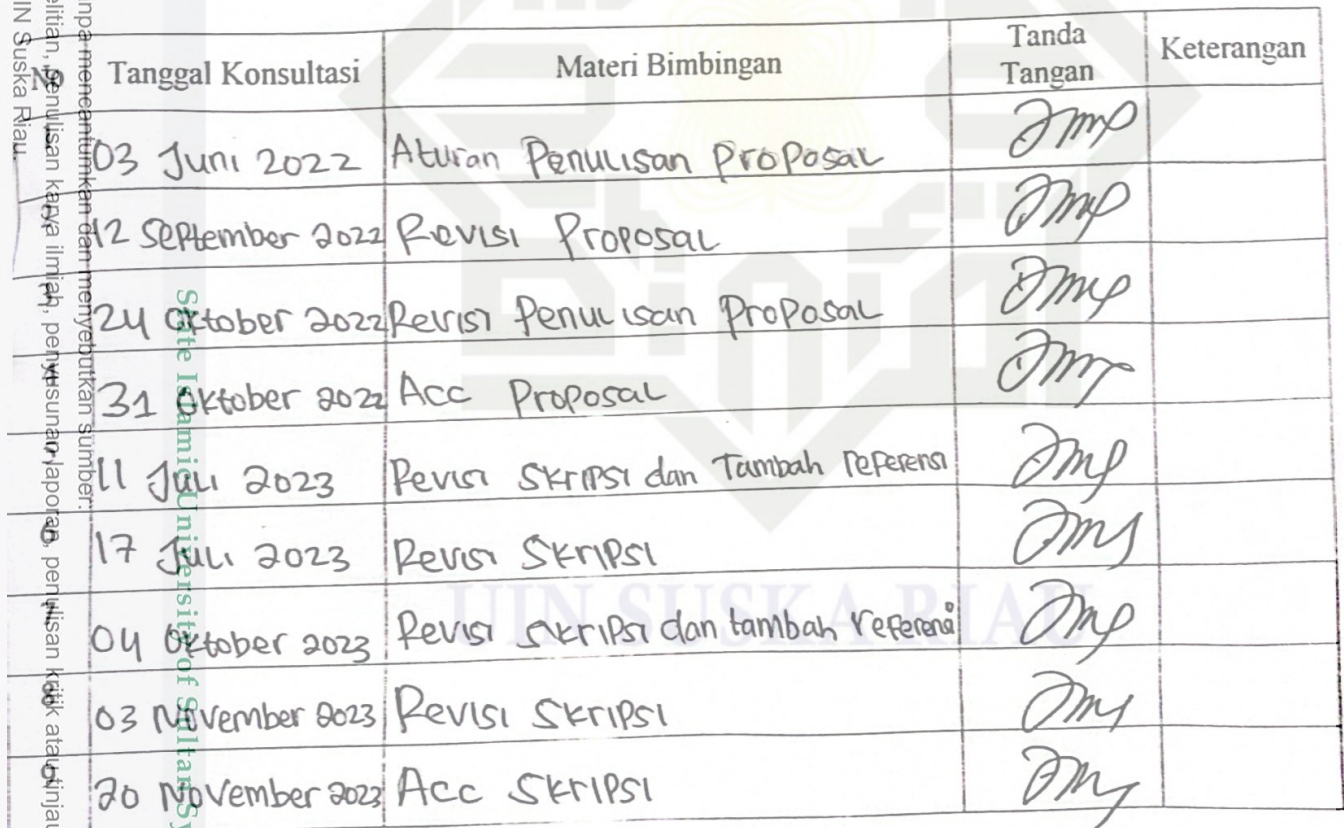 No Tanggal Konsultasi Materi Bimbingan Tanda Tangan Keterangan
03 Juni 2022 Aturan Penulisan Proposal
12 September 2022 Revisi Proposal
24 Oktober 2022 Revisi Penulisan Proposal
31 Oktober 2022 Acc Proposal
11 Juli 2023 Revisi Skripsi dan Tambah referensi
17 Juli 2023 Revisi Skripsi
04 Oktober 2023 Revisi Skripsi dan tambah referensi
03 November 2023 Revisi Skripsi
20 November 2023 Acc Skripsi
UIN SUSKA RIAU
State Islamic University of Sultan Sy
npa mencantumkan dan menyebutkan sumber:
elitian, penulisan karya ilmiah, penyusunan laporan, penulisan kritik atau tinjau
IN Suska Riau.